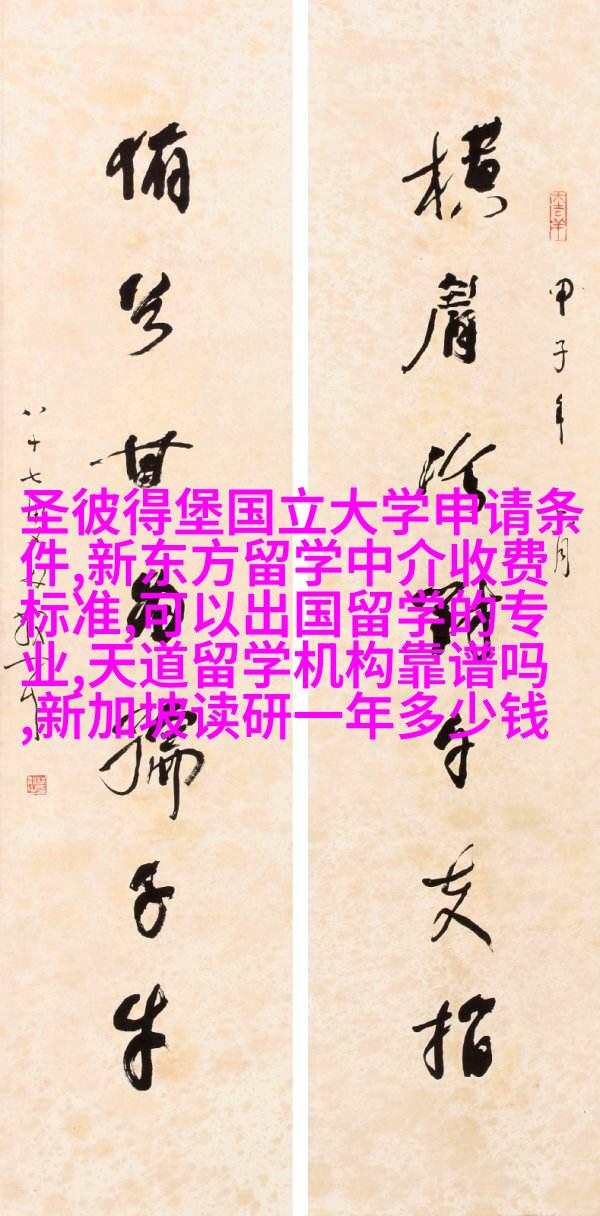 甲子年
横眉冷对千夫指
俯首甘为孺子牛
八十七
圣彼得堡国立大学申请条
件,新东方留学中介收费
标准,可以出国留学的专
业,天道留学机构靠谱吗
,新加坡读研一年多少钱